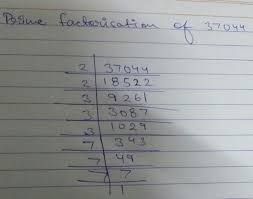 Prime factorisation of 37044
2 | 37044
2 | 18522
3 | 9261
3 | 3087
3 | 1029
7 | 343
7 | 49
7
1